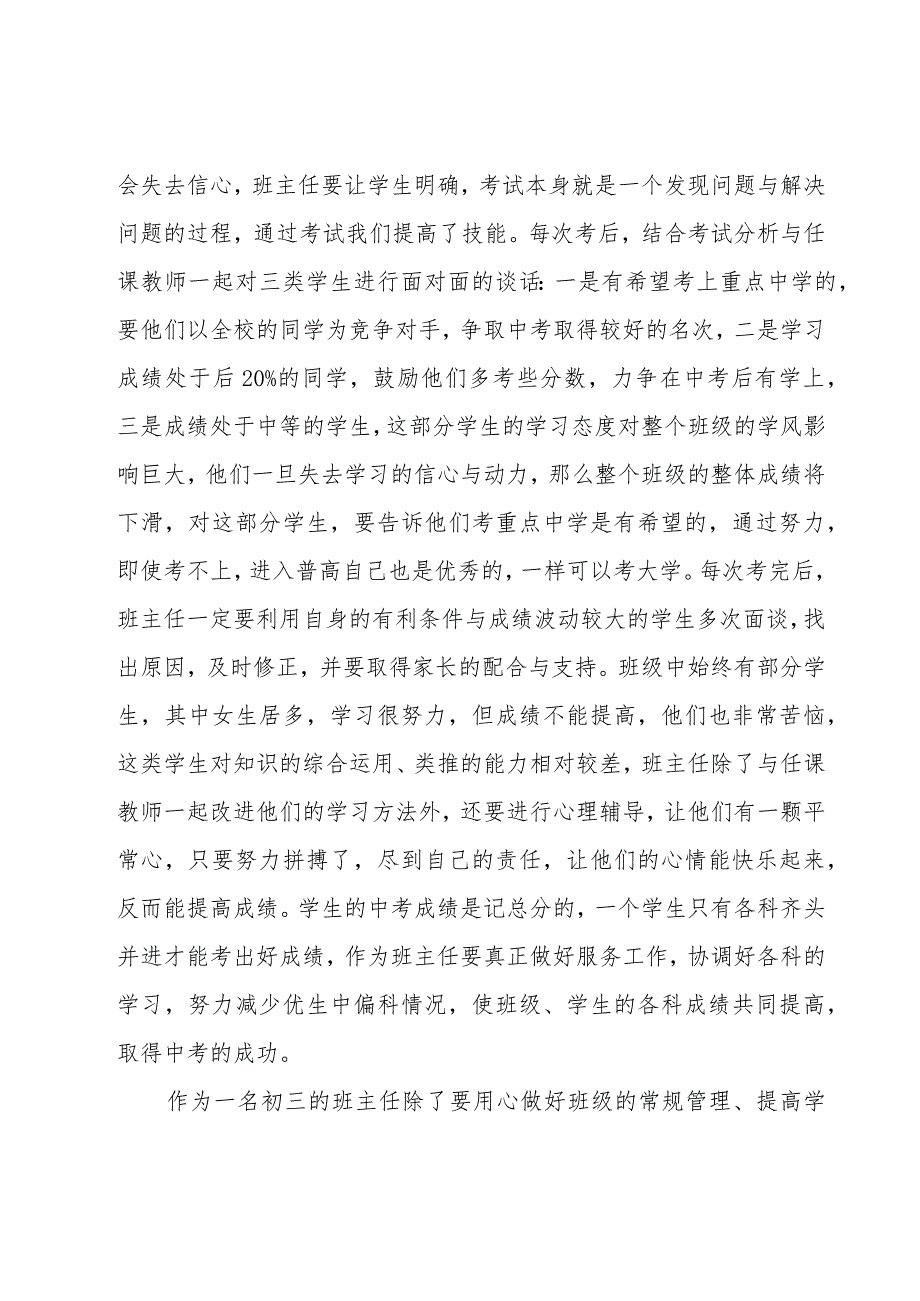 会失去信心，班主任要让学生明确，考试本身就是一个发现问题与解决
问题的过程，通过考试我们提高了技能。每次考后，结合考试分析与任
课教师一起对三类学生进行面对面的谈话：一是有希望考上重点中学的，
要他们以全校的同学为竞争对手，争取中考取得较好的名次，二是学习
成绩处于后20%的同学，鼓励他们多考些分数，力争在中考后有学上，
三是成绩处于中等的学生，这部分学生的学习态度对整个班级的学风影
响巨大，他们一旦失去学习的信心与动力，那么整个班级的整体成绩将
下滑，对这部分学生，要告诉他们考重点中学是有希望的，通过努力，
即使考不上，进入普高自己也是优秀的，一样可以考大学。每次考完后，
班主任一定要利用自身的有利条件与成绩波动较大的学生多次面谈，找
出原因，及时修正，并要取得家长的配合与支持。班级中始终有部分学
生，其中女生居多，学习很努力，但成绩不能提高，他们也非常苦恼，
这类学生对知识的综合运用、类推的能力相对较差，班主任除了与任课
教师一起改进他们的学习方法外，还要进行心理辅导，让他们有一颗平
常心，只要努力拼搏了，尽到自己的责任，让他们的心情能快乐起来，
反而能提高成绩。学生的中考成绩是记总分的，一个学生只有各科齐头
并进才能考出好成绩，作为班主任要真正做好服务工作，协调好各科的
学习，努力减少优生中偏科情况，使班级、学生的各科成绩共同提高，
取得中考的成功。
作为一名初三的班主任除了要用心做好班级的常规管理、提高学